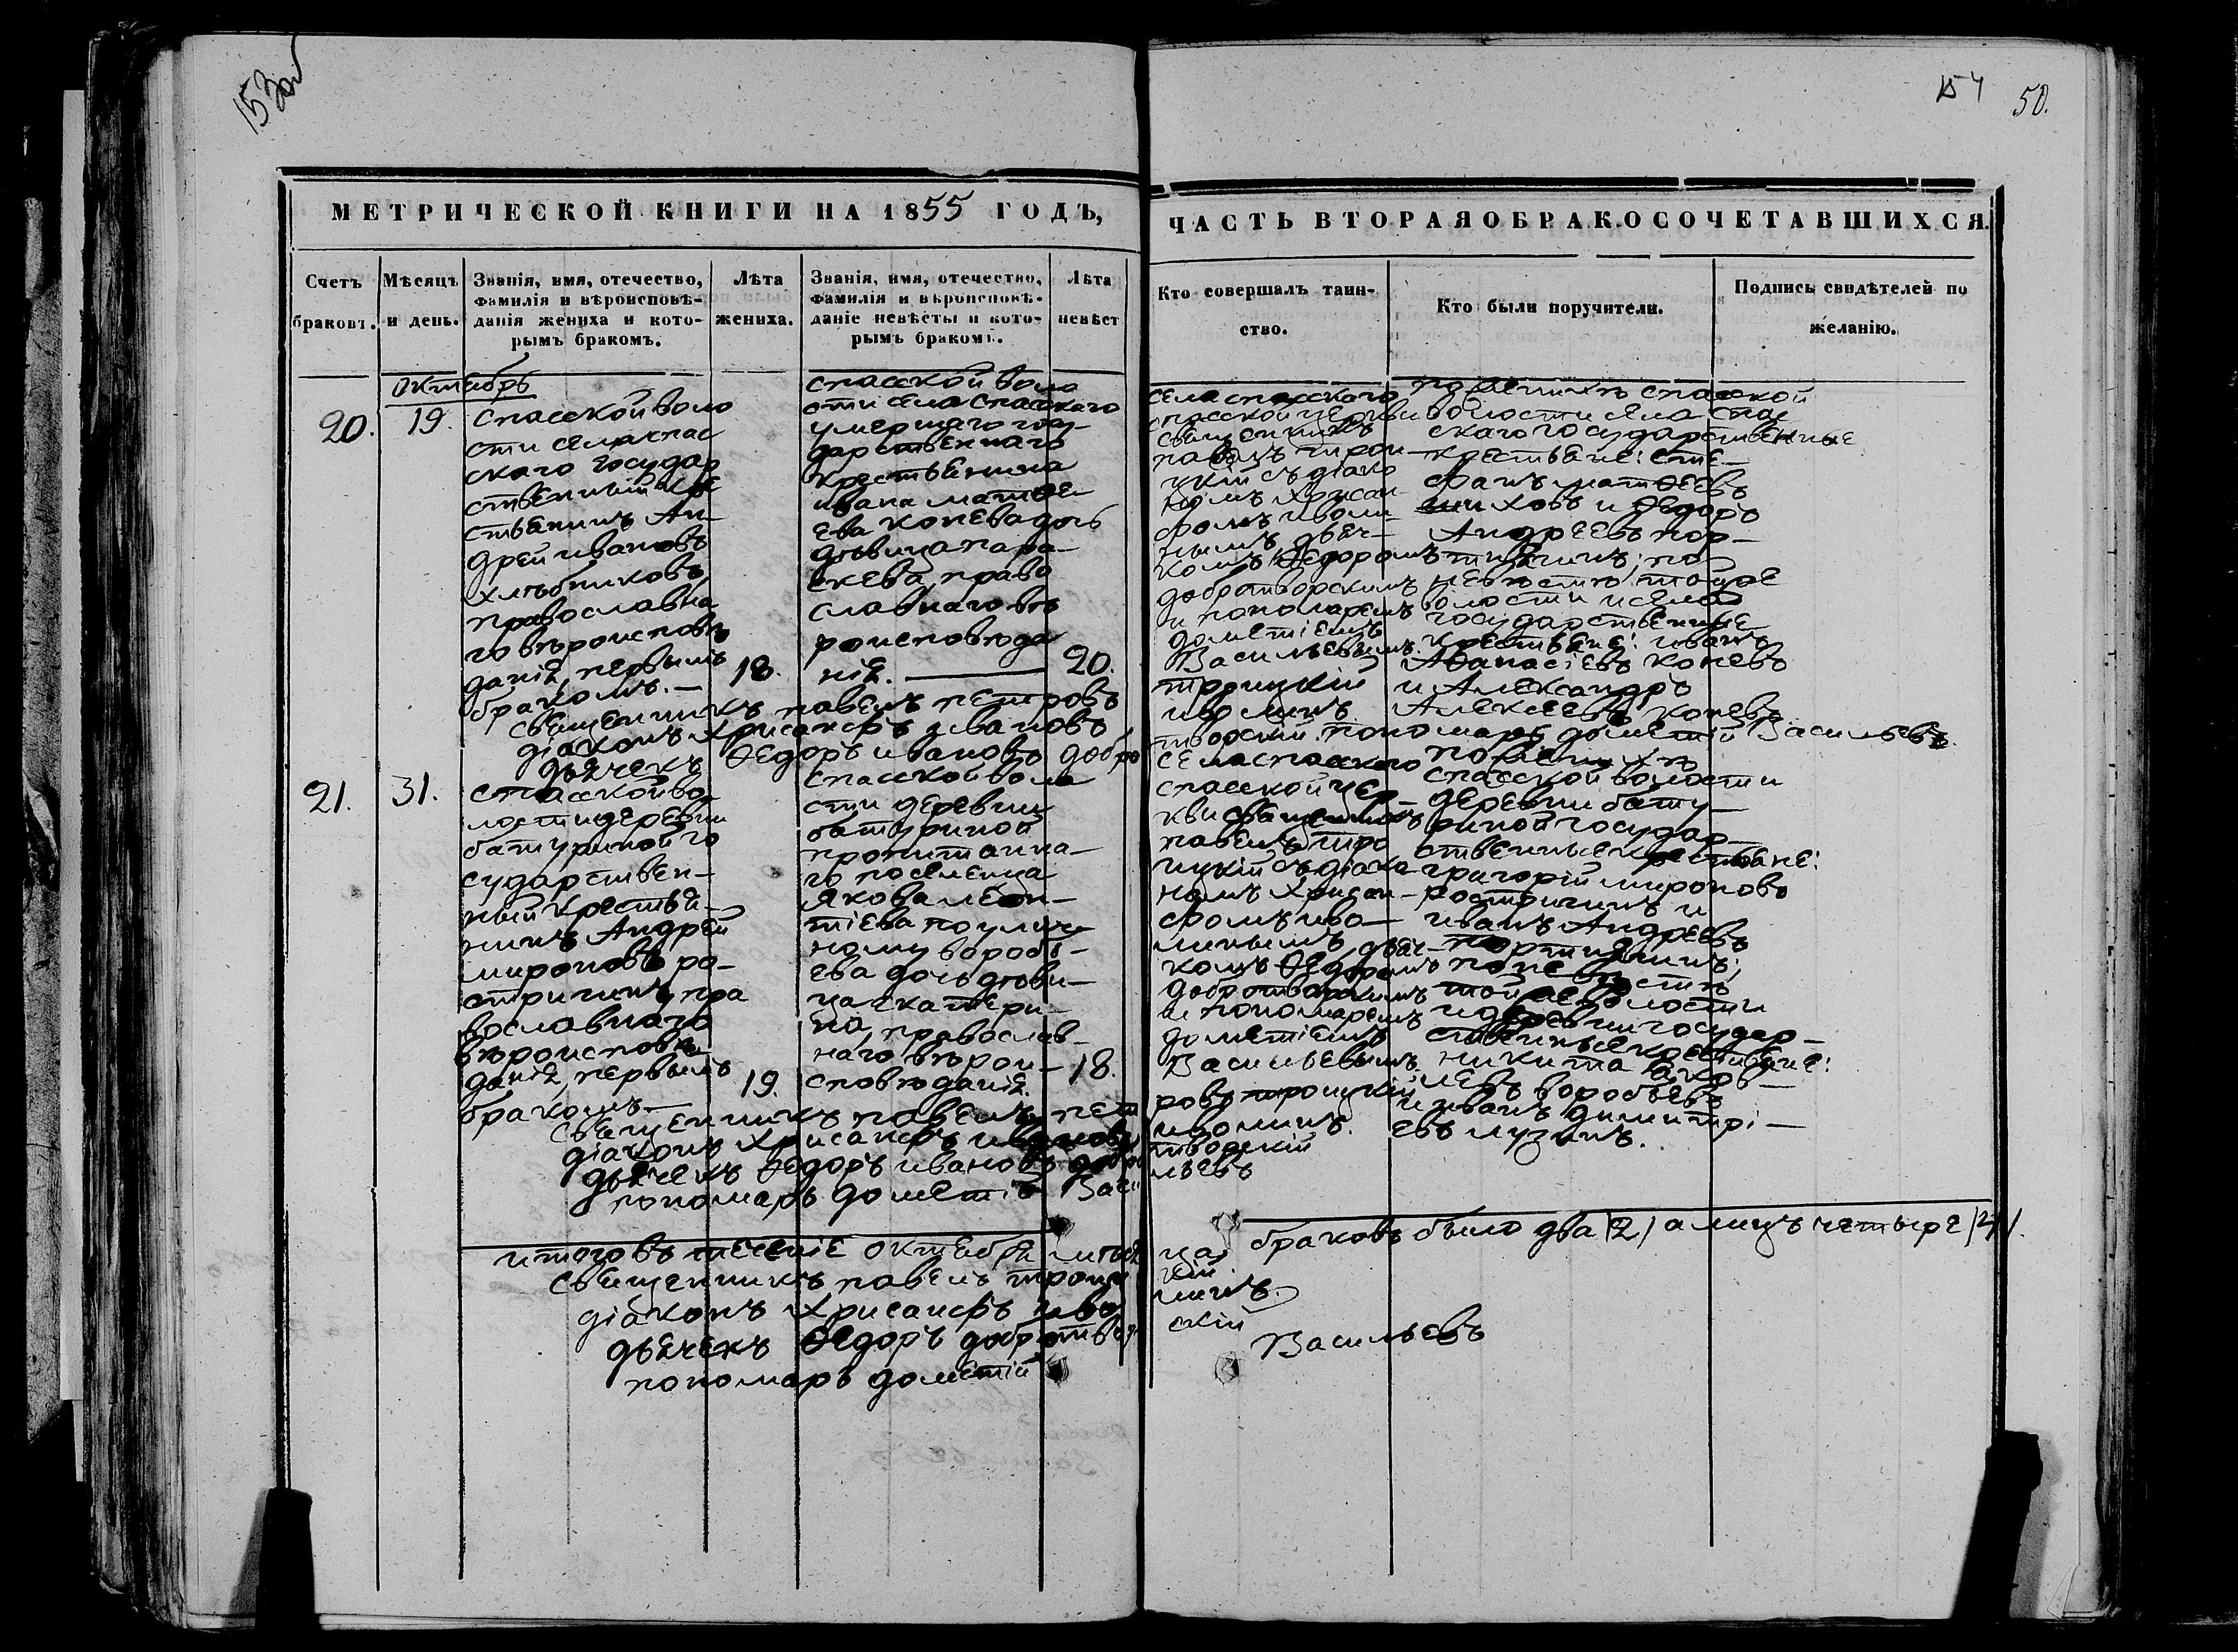 153об
154 50.
МЕТРИЧЕСКОЙ КНИГИ НА 1855 ГОДЪ,
ЧАСТЬ ВТОРАЯ О БРАКОСОЧЕТАВШИХСЯ.
Счетъ браковъ.
Мѣсяцъ и день.
Званія, имя, отечество,
фамилія и вѣроисповѣ-
данія жениха и кото-
рымъ бракомъ.
Лѣта
жениха.
Званія, имя, отечество,
фамилія и вѣроисповѣ-
даніе невѣсты и кото-
рымъ бракомъ.
Лѣта
невѣст
Кто совершалъ таин-
ство.
Кто были поручители.
Подпись свидѣтелей по
желанію.
Октябрь
20.
19.
Спасской воло
сти села спас
скаго государ
ственный кре
стьянинъ Ан-
дрей ивановъ
хлѣбниковъ,
православна
го вѣроисповѣ
данія, первымъ
бракомъ.—
18.
спасской воло
сти села спасскаго
умершаго госу-
дарственнаго
крестьянина
ивана матѳе-
ева конева дочь
дѣвица пара-
скева, право
славнаго вѣ
роисповѣда
нія.—
20.
села спасскаго
спасской церкви
священникъ
павелъ трои-
цкій съ діако
номъ хрисан-
фомъ ивоми-
нымъ, дьяч-
комъ Ѳедоромъ
добротворскимъ
и пономаремъ
дометіемъ
Васильевымъ.
по женихѣ спасской
волости села спас
скаго государственные
крестьяне: сте-
фанъ матѳеевъ
ховъ и Ѳедоръ
Андреевъ пор-
тнягинъ; по
невѣстѣ тойже
волости и села
государственные
крестьяне: иванъ
Аѳанасіевъ коневъ
и Александръ
Алексеевъ коневъ
священникъ павелъ петровъ троицкій
діаконъ Хрисанфъ ивановъ ивоминъ
дьячекъ Ѳедоръ ивановъ добротворскій. пономарь дометій Васильевъ.
21.
31.
Спасской во-
лости деревни
батуриной го
сударствен-
ный крестья-
нинъ Андрей
мироновъ ро-
стригинъ, пра
вославнаго
вѣроисповѣ
данія, первымъ
бракомъ.—
19.
спасской воло
сти деревни
батуриной
пропитанна-
го поселенца
Якова леон-
тіева по улич
ному воробь-
ева дочь дѣви-
ца екатери-
на, православ-
наго вѣрои-
сповѣданія.
18.
села спасскаго
спасской цер-
кви священникъ
павелъ трои
цкій съ діако-
номъ хрисан-
фомъ иво-
минымъ, дьяч-
комъ Ѳедоромъ
добротворскимъ
и пономаремъ
дометіемъ
Васильевымъ.
по женихѣ
спасской волости
деревни бату-
риной государ-
ственные крестьяне:
григорій мироновъ
ростригинъ и
иванъ Андреевъ
портнягинъ;
по невѣстѣ
той же волости
и деревни государ-
ственные крестьяне:
никита яков-
левъ воробьевъ
и иванъ димитрі-
евъ лузинъ.
священникъ павелъ петровъ троицкій
діаконъ хрисанфъ ивановъ ивоминъ.
дьячекъ Ѳедоръ ивановъ добротворскій
пономарь дометій Васильевъ
итого въ теченіе октября мѣсяца браковъ было два /2/ а лицъ четыре /4/.
священникъ павелъ троицкій
діаконъ Хрисанфъ ивоминъ.
дьячекъ Ѳедоръ добротворскій
пономарь дометій Васильевъ